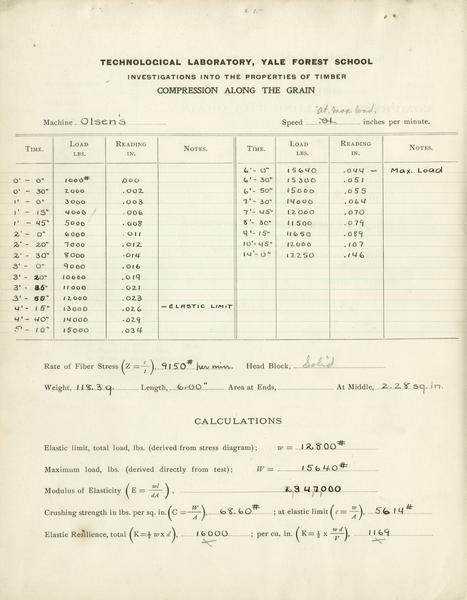 TECHNOLOGICAL LABORATORY, YALE FOREST SCHOOL
INVESTIGATIONS INTO THE PROPERTIES OF TIMBER
COMPRESSION ALONG THE GRAIN
at max load.
Machine Olsen's Speed .01 inches per minute.
TIME. LOAD LBS. READING IN. NOTES. TIME. LOAD LBS. READING IN. NOTES.
6'-0" 15640 .044 — Max. Load
0'-0" 1000# .000 6'-30" 15300 .051
0'-30" 2000 .002 6'-50" 15000 .055
1'-0" 3000 .003 7'-30" 14000 .064
1'-15" 4000 .006 7'-45" 12000 .070
1'-45" 5000 .008 8'-30" 11500 .079
2'-0" 6000 .011 9'-15" 11650 .089
2'-20" 7000 .012 10'-45" 12000 .107
2'-30" 8000 .014 14'-0" 12250 .146
3'-0" 9000 .016
3'-20" 10000 .019
3'-35" 11000 .021
3'-50" 12000 .023
4'-15" 13000 .026 — ELASTIC LIMIT
4'-40" 14000 .029
5'-10" 15000 .034
Rate of Fiber Stress (Z = c/t), 9150# per min. Head Block, Solid
Weight, 118.3 g. Length, 6.00" Area at Ends, At Middle, 2.28 sq. in.
CALCULATIONS
Elastic limit, total load, lbs. (derived from stress diagram); w = 12800#
Maximum load, lbs. (derived directly from test); W = 15640#
Modulus of Elasticity (E = wl/dA), 2,347,000
Crushing strength in lbs. per sq. in. (C = W/A), 6860# ; at elastic limit (c = w/A), 5614#
Elastic Resilience, total (K=½ w x d), 16000 ; per cu. in. (K=½ x wd/V) 1169